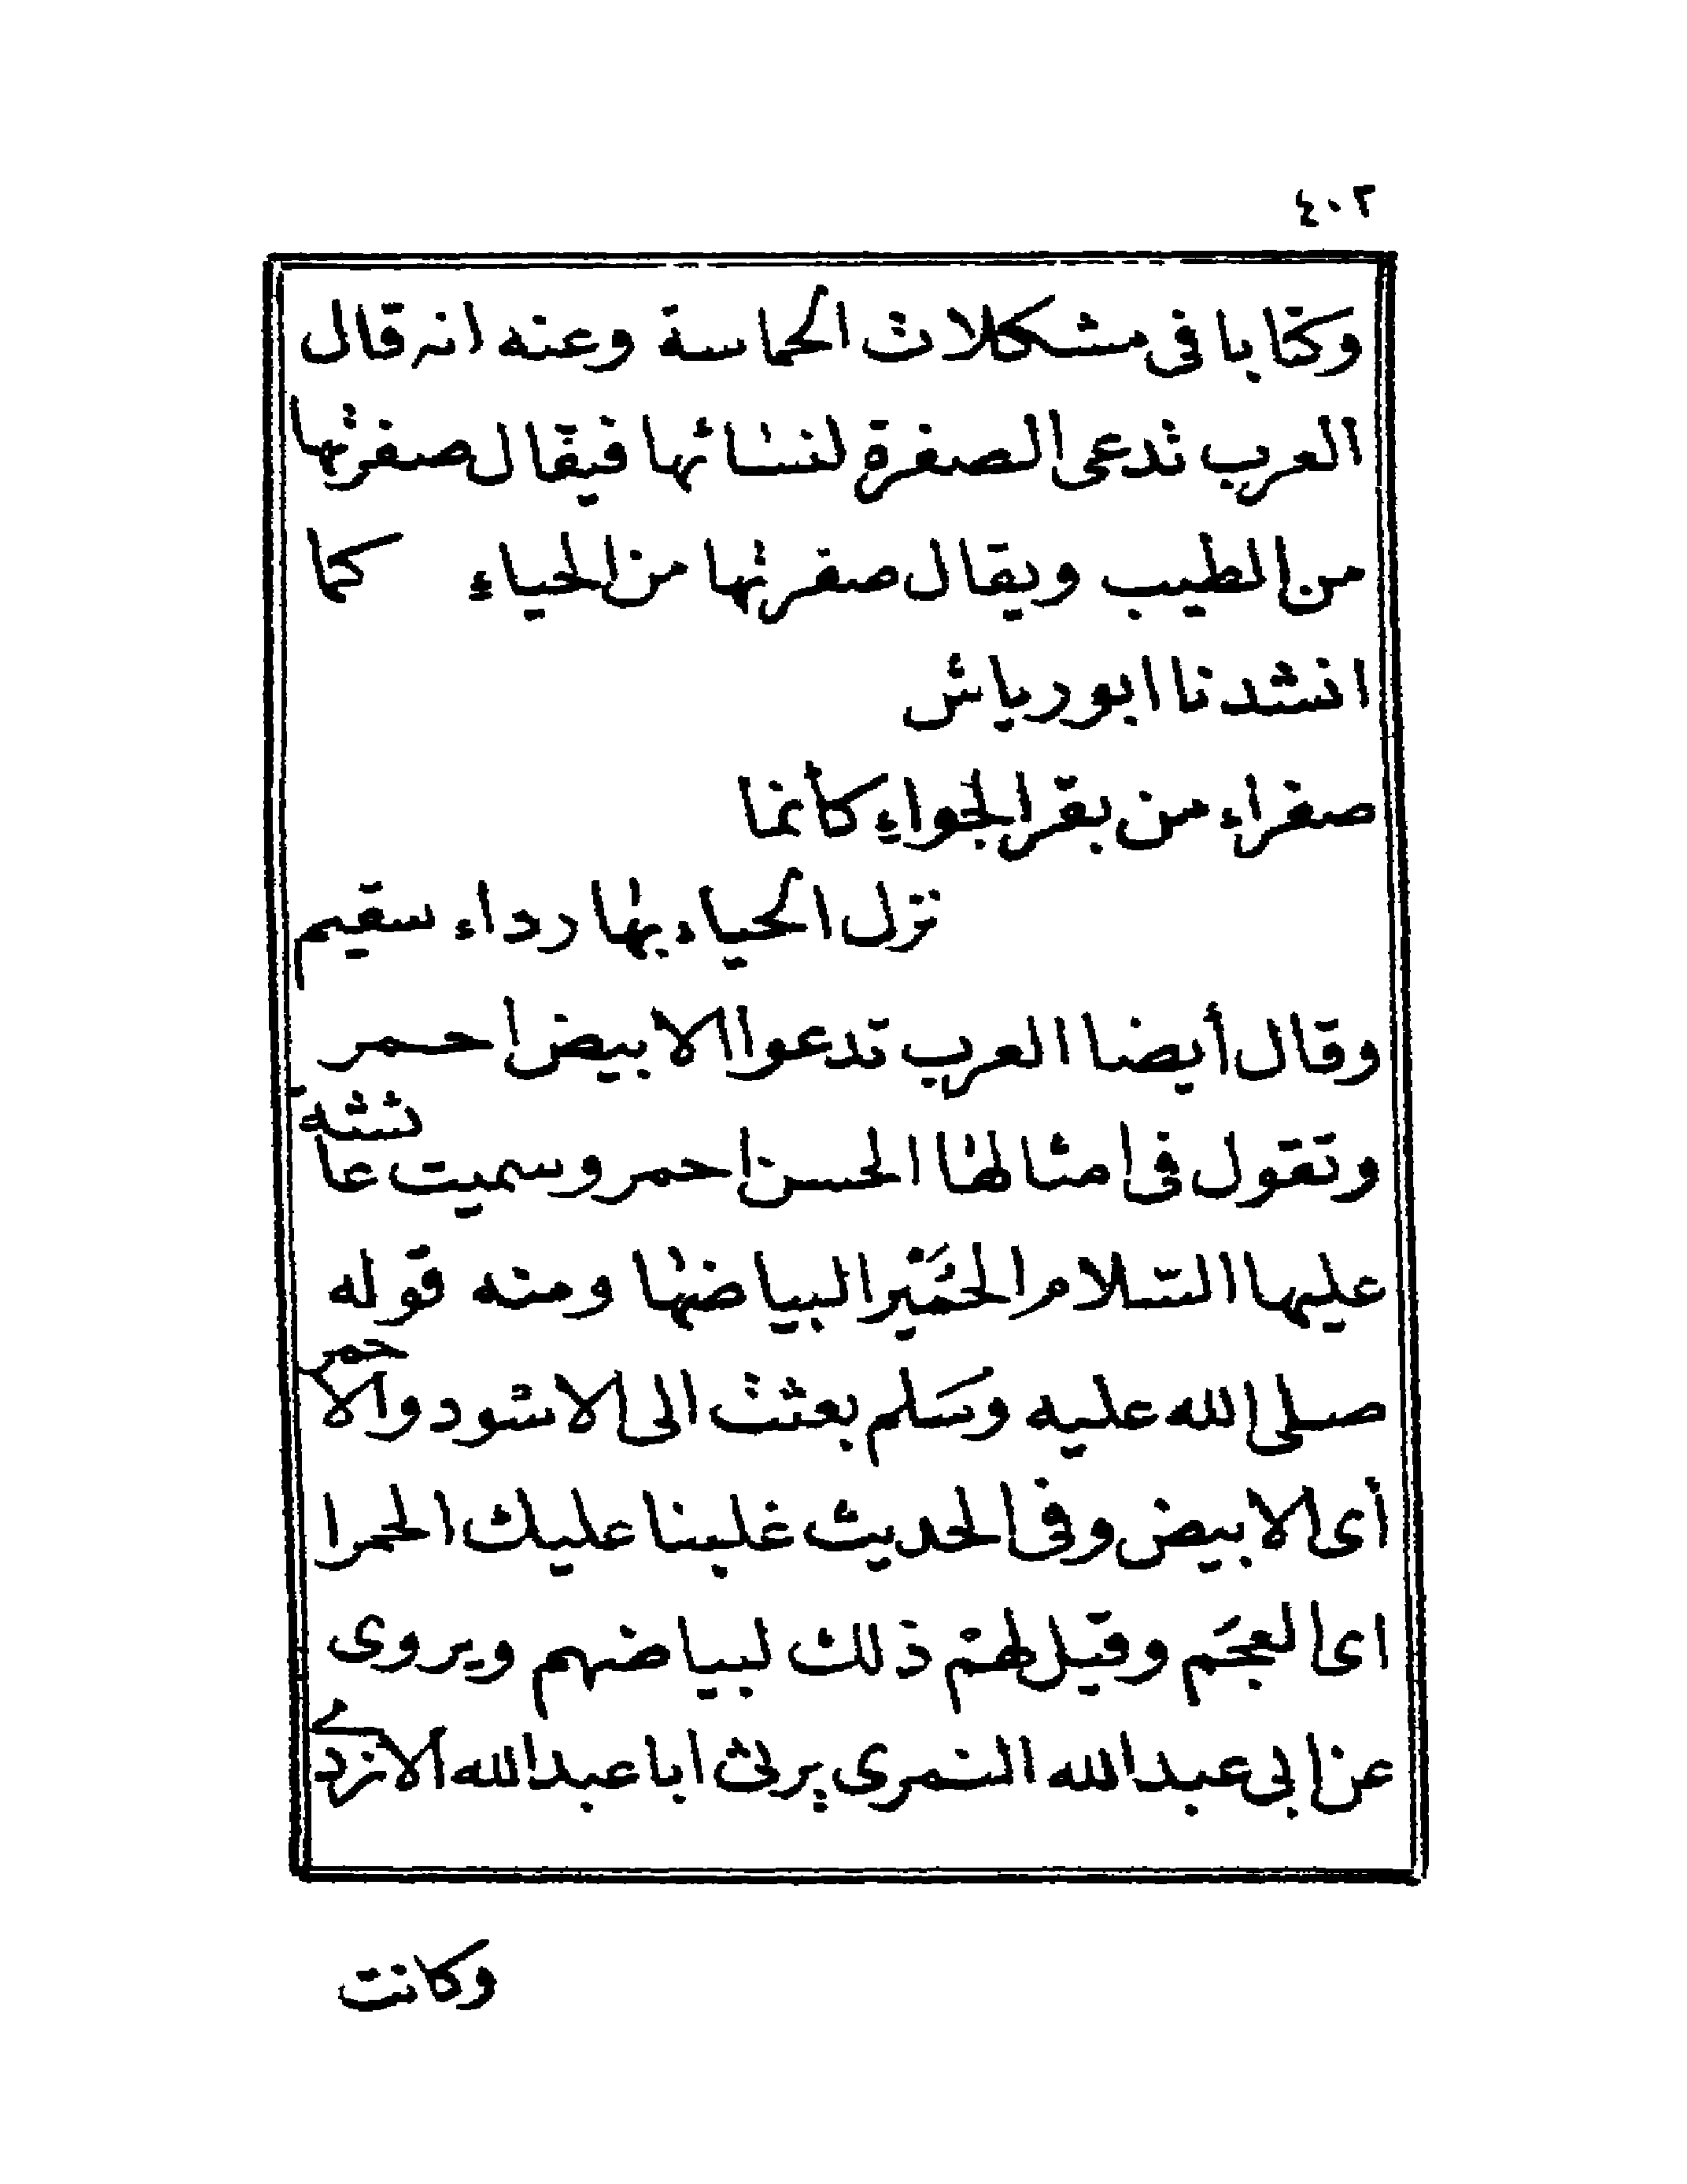 ٤٠٢
وكتابا فى مشكلات الحماسة وعنه انه قال
العرب تدعى الصفرة لنسائها فيقال صفرتها
من الطيب ويقال صفرتها من الحياء كما
انشدنا ابو رياش
صفراء من بقر الجواء كأنما
نزل الحياء بها رداء سقيم
وقال أيضا العرب تدعوا الابيض احمر
وتقول فى امثالها الحسن احمر وسميت عائشة
عليها السلام الحُمَيْرا لبياضها ومنه قوله
صلى الله عليه وسَلم بعثت الى الاسود والاحمر
أى الابيض وفى الحديث غلبنا عليك الحمرا
اى العجَم وقيل لهمْ ذلك لبياضهم ويروى
عن ابى عبد الله النمرى يرثى ابا عبد الله الازدى
وكانت